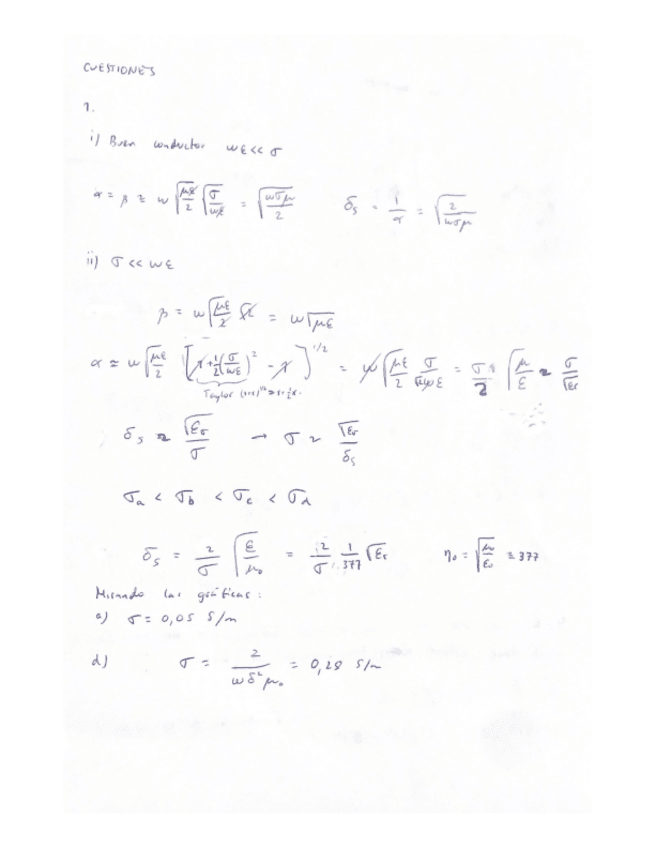 CUESTIONES
1.
i) Buen conductor ωε<< σ
α = β ≈ ω √(με/2) √(σ/ωε) = √(ωσμ/2) δs = 1/α = √(2/ωσμ)
ii) σ << ωε
β = ω √(με/2) √2 = ω √με
α ≈ ω √(με/2) [1+½(σ/ωε)² - 1]^1/2 = ω √(με/2) σ/(√2 ωε) = σ/2 √(μ/ε) ≈ σ/√εr
Taylor (1+x)^1/2 ≈ 1+½x
δs ≈ √εr/σ → σ ≈ √εr/δs
σa < σb < σc < σd
δs = 2/σ √(ε/μ0) = 2/σ 1/377 √εr η0 = √(μ0/ε0) ≈ 377
Mirando las gráficas:
a) σ = 0,05 S/m
d) σ = 2/(ωδ²μ0) = 0,28 S/m